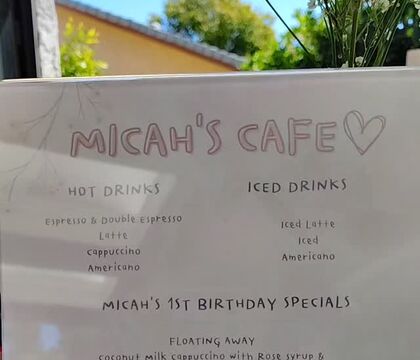 MICAH'S CAFE
HOT DRINKS
Espresso & Double Espresso
Latte
Cappuccino
Americano
ICED DRINKS
Iced Latte
Iced
Americano
MICAH'S 1ST BIRTHDAY SPECIALS
FLOATING AWAY
coconut milk cappuccino with Rose syrup &